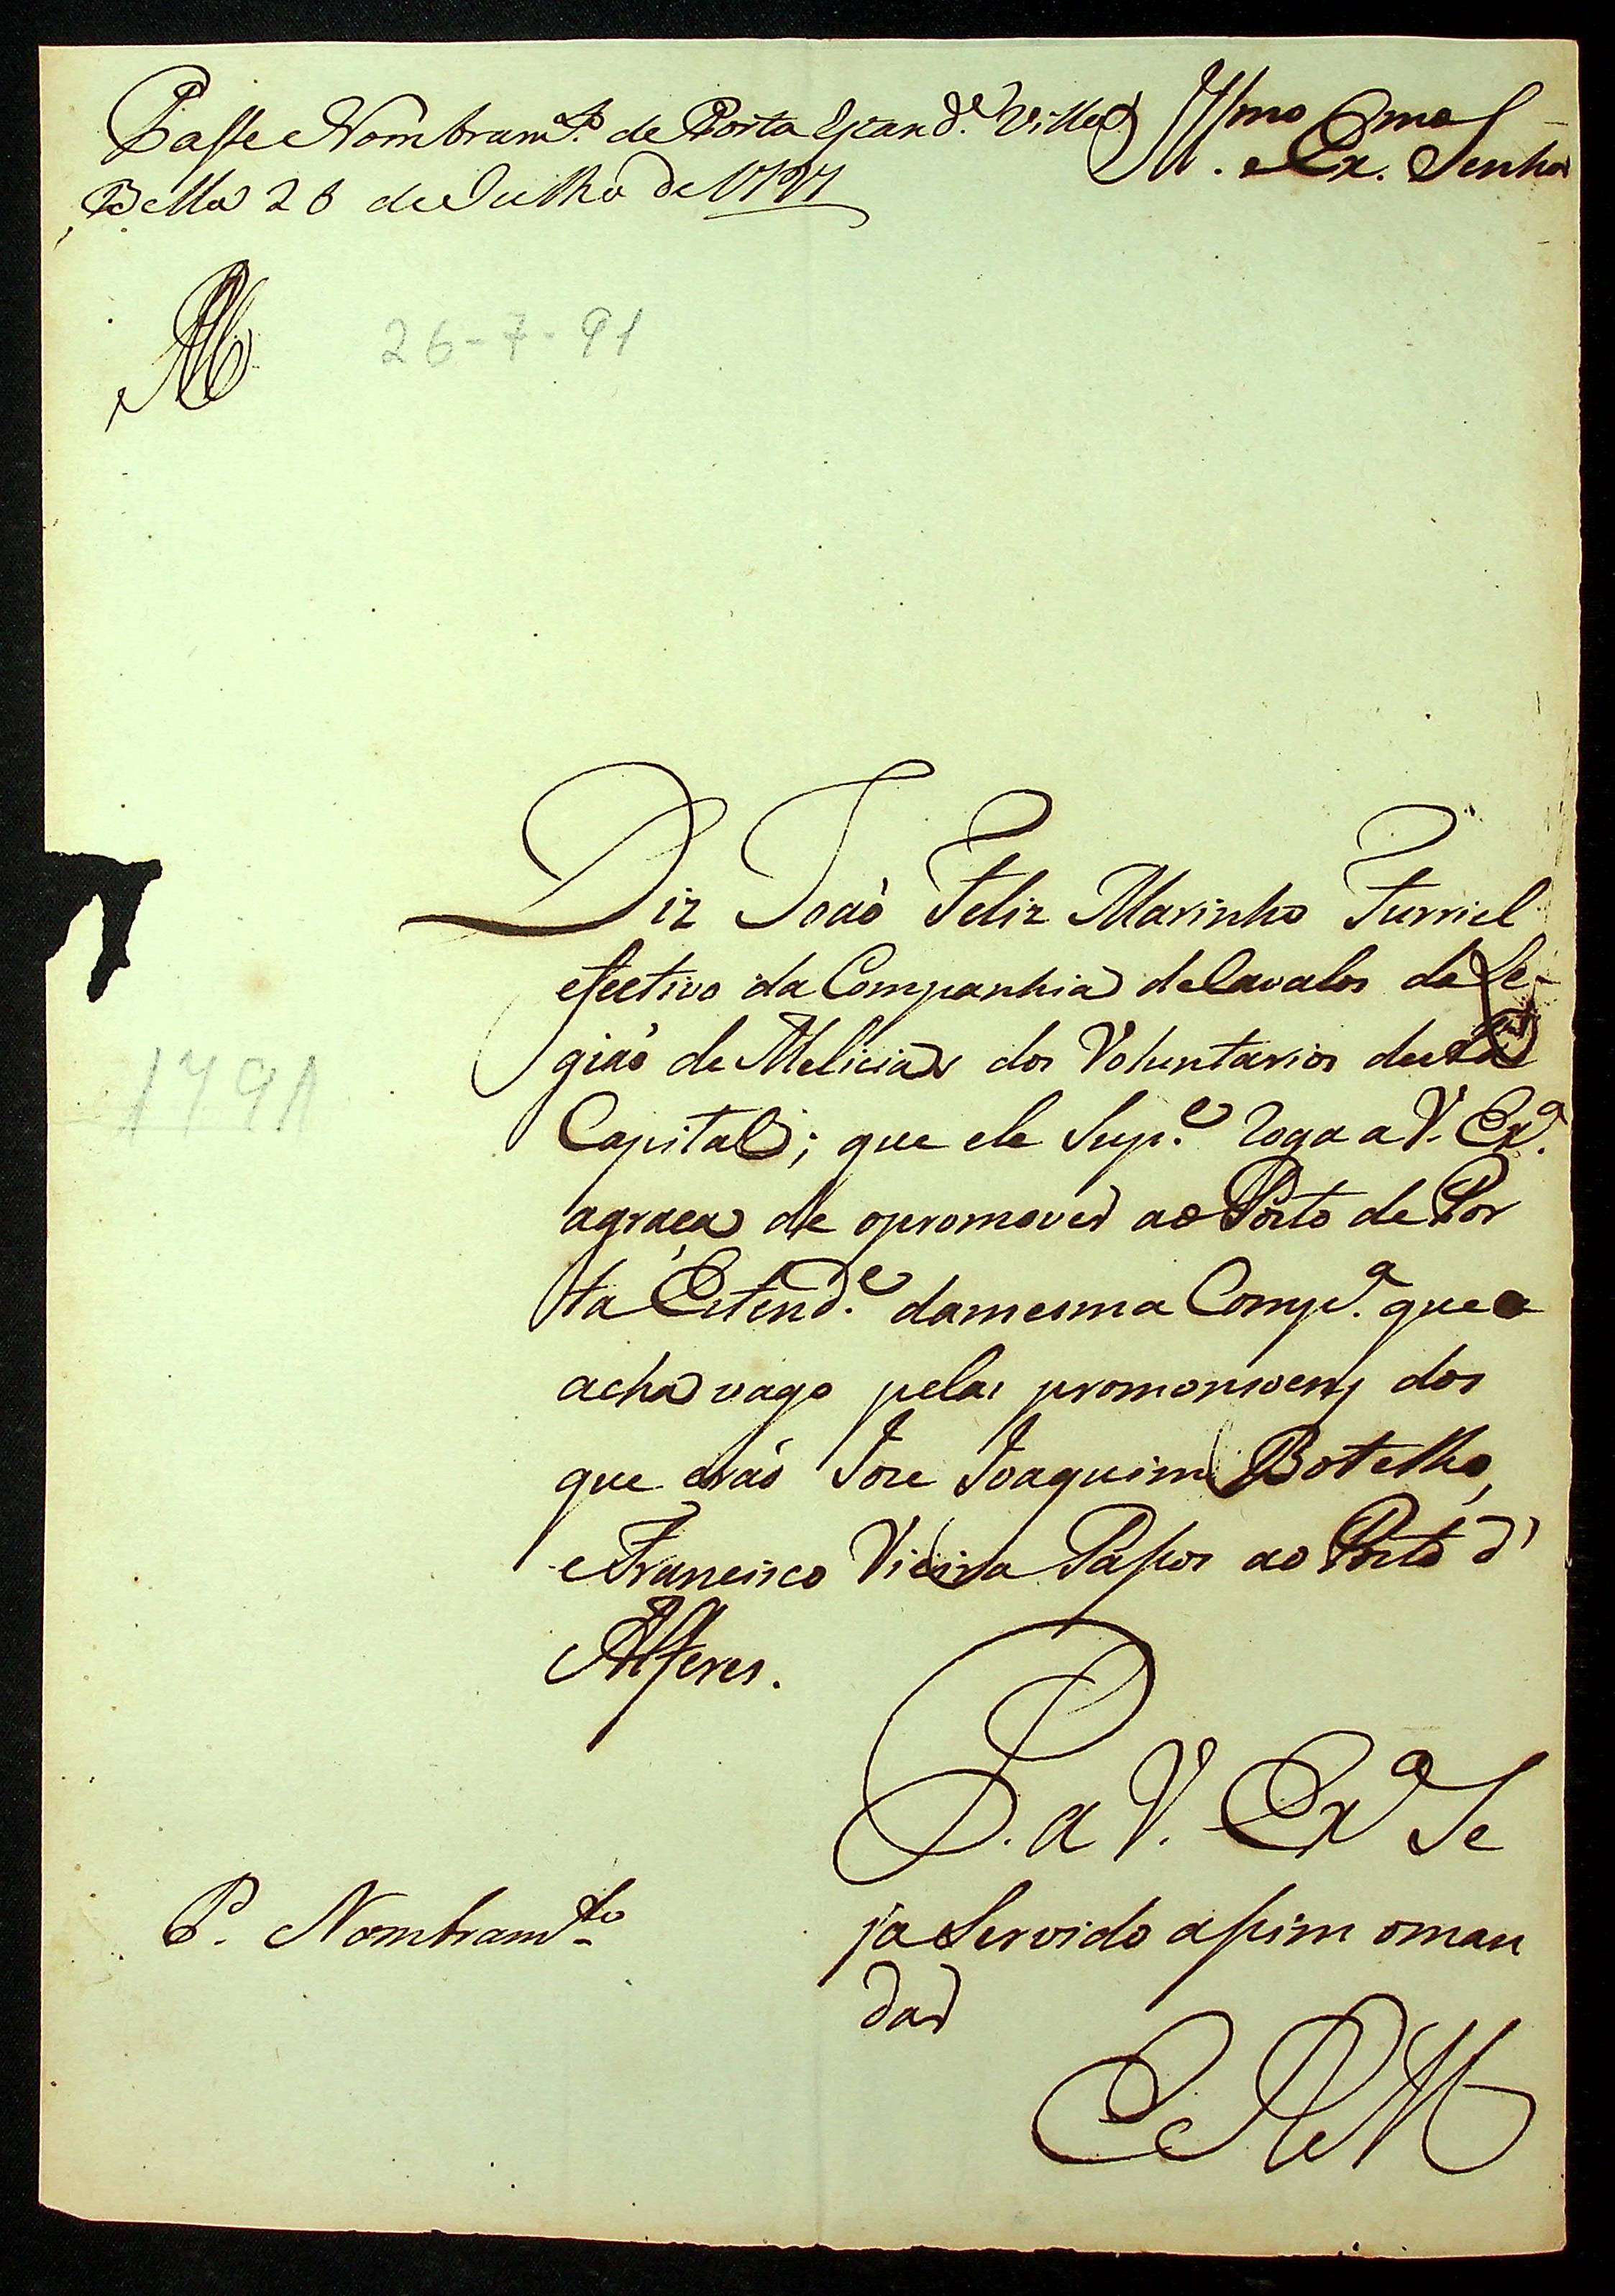 Passe Nombram.to de Porta Estand.e Villa
Bella 26 de Julho de 1791
Ill.mo e Ex.mo Senhor
26-7-91
Diz Joaõ Feliz Marinho Furriel
efectivo da Companhia de Cavalos da Le-
giaõ de Melicias dos Voluntarios desta
Capital; que ele Sup.e Roga a V. Ex.a
a graça de o promover ao Posto de Por
ta Estend.e da mesma Comp.a que
acha vago pelas dos
que eraõ Joze Joaquim Botelho,
e Francisco Vieira Passos ao Posto d'
Alferes.
1791
P. a V. Ex.a Se
ja Servido assim o man
dar
P. Nombram.to
E R M